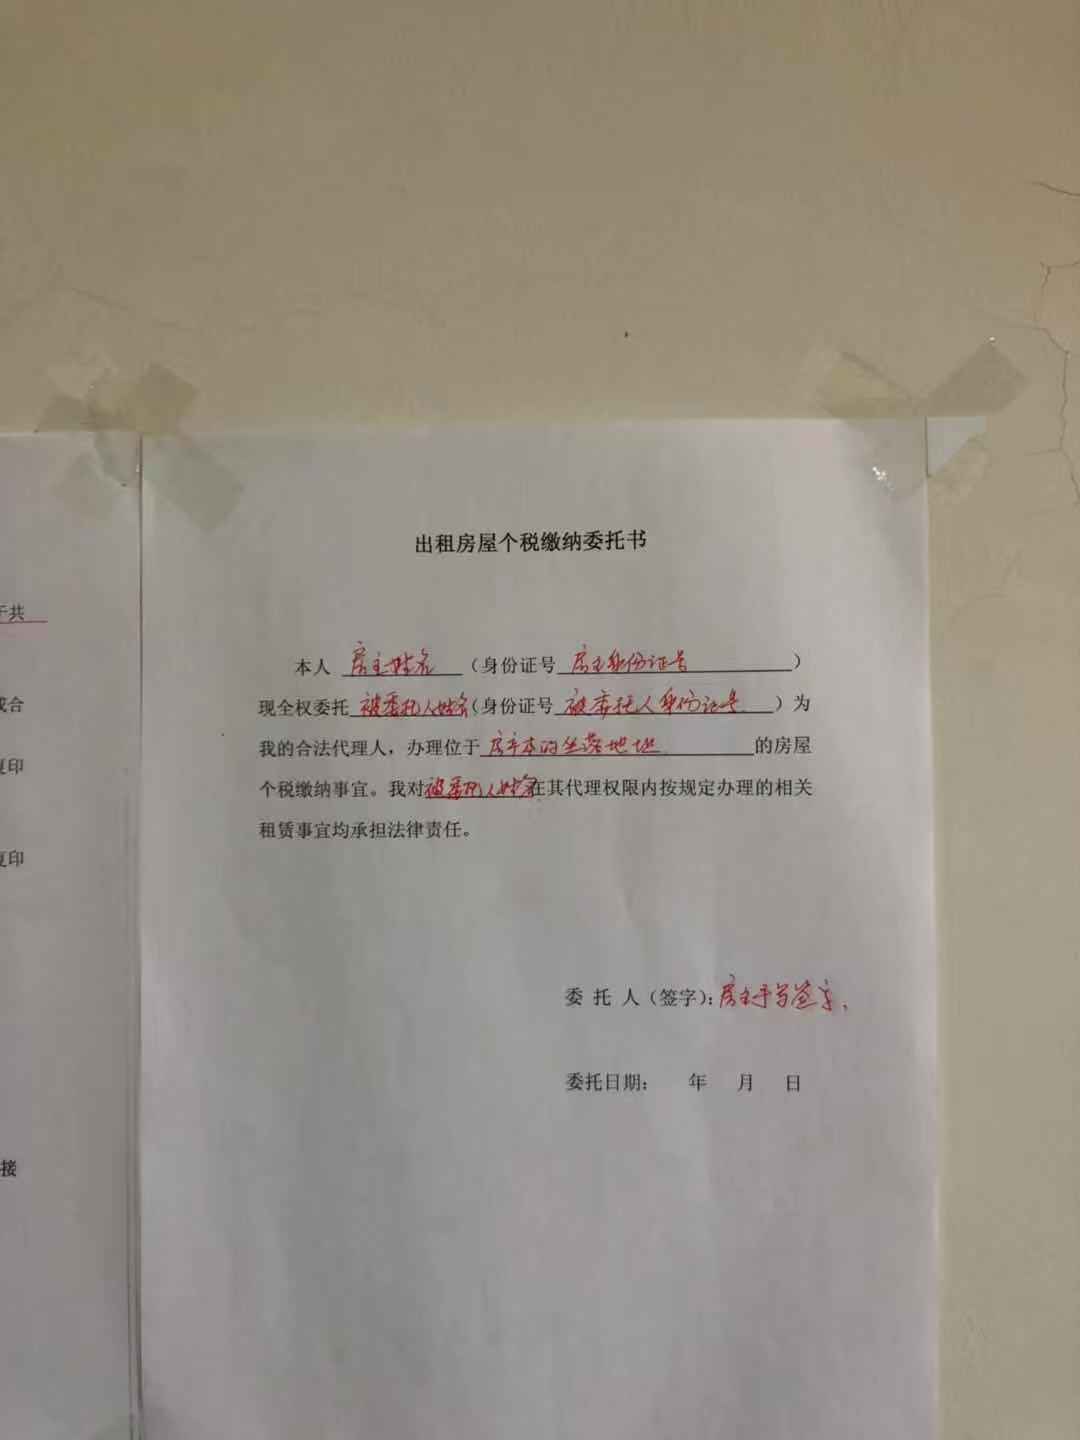 出租房屋个税缴纳委托书
本人 房主姓名 （身份证号 房主身份证号 ）
现全权委托 被委托人姓名（身份证号 被委托人身份证号 ）为
我的合法代理人，办理位于 房本的坐落地址 的房屋
个税缴纳事宜。我对被委托人姓名在其代理权限内按规定办理的相关
租赁事宜均承担法律责任。
委 托 人（签字）：房主手写签字、
委托日期： 年 月 日
于共
或合
复印
复印
接